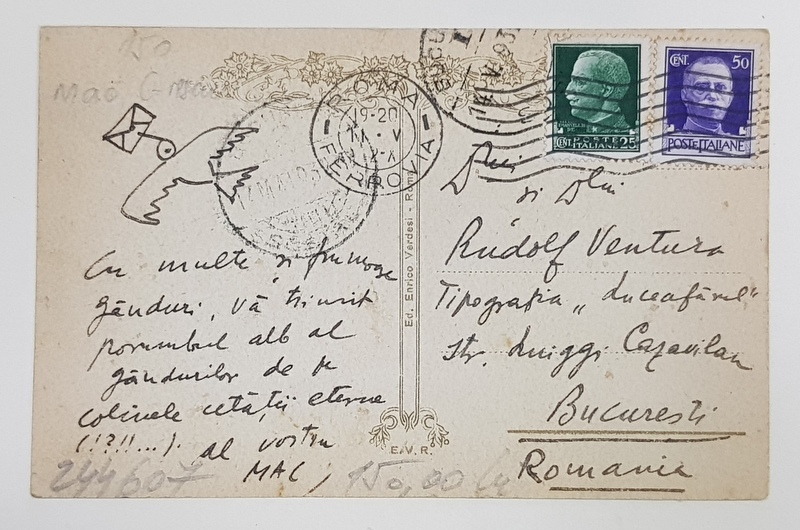 150
ROMA
19-20
FERROVIA
CENT. 25
POSTE ITALIANE
CENT. 50
POSTE ITALIANE
Cu multe și frumoase
gânduri, vă trimit
porumbul alb al
gândurilor de pe
colinele cetății eterne
(!?!!...). al vostru
MAC
Dnei
și Dlui
Rudolf Ventura
Tipografia „Luceafărul"
Str. Luiggi Cazavilan
Bucuresti
Romania
Ed. Enrico Verdesi - Roma
E.V.R.
244607
150,00